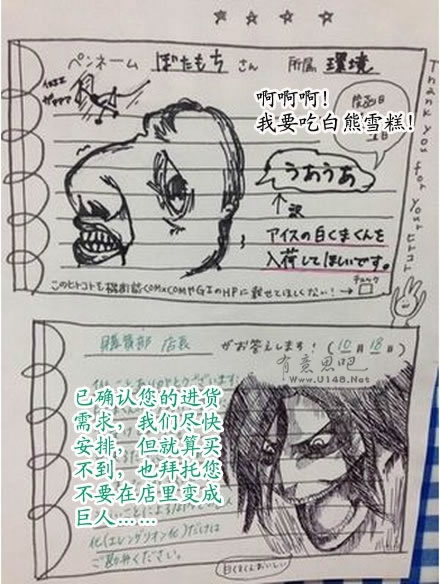 ペンネーム ぼたもち さん 所属 環境
啊啊啊!
我要吃白熊雪糕!
Thank you for your ヒトコト
うあうあ
↑訳
アイスの白くまくんを
入荷してほしいです。
チェック
のHPに載せてほしくない!→□
購買部 店長 がお答えします! (10月18日)
有意思吧
www.U148.Net
已确认您的进货
需求，我们尽快
安排，但就算买
不到，也拜托您
不要在店里变成
巨人……
化(エレンゲリオン化)だけは
ご勘弁ください。
白くまくんおいしい